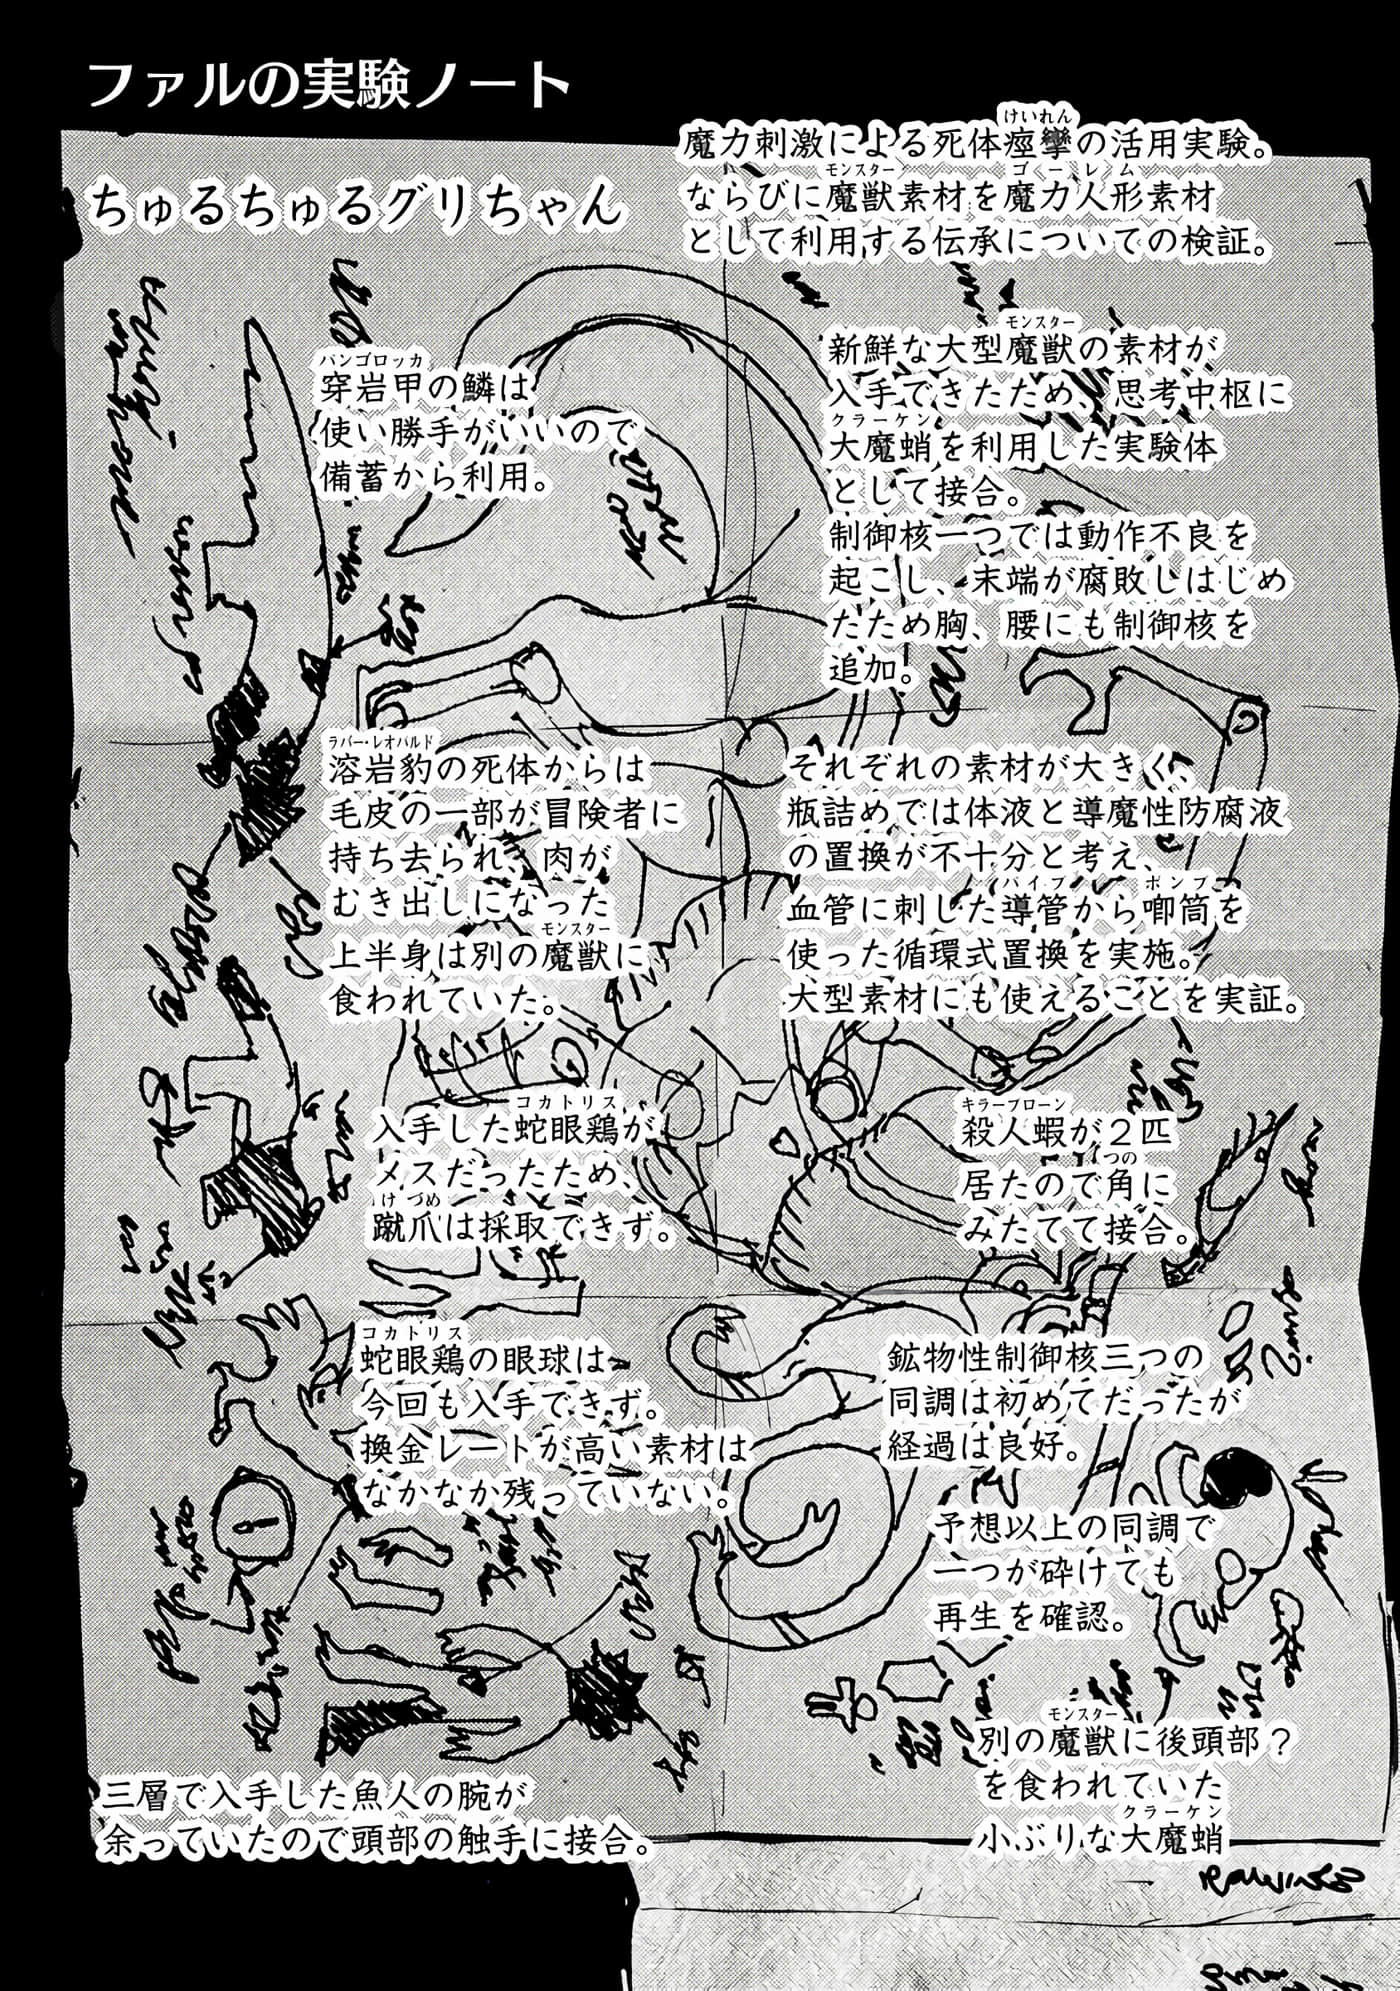 ファルの実験ノート
ちゅるちゅるグリちゃん
魔力刺激による死体痙攣の活用実験。
ならびに魔獣素材を魔力人形素材
として利用する伝承についての検証。
新鮮な大型魔獣の素材が
入手できたため、思考中枢に
大魔蛸を利用した実験体
として接合。
制御核一つでは動作不良を
起こし、末端が腐敗しはじめ
たため胸、腰にも制御核を
追加。
穿岩甲の鱗は
使い勝手がいいので
備蓄から利用。
溶岩豹の死体からは
毛皮の一部が冒険者に
持ち去られ、肉が
むき出しになった
上半身は別の魔獣に
食われていた。
それぞれの素材が大きく、
瓶詰めでは体液と導魔性防腐液
の置換が不十分と考え、
血管に刺した導管から喞筒を
使った循環式置換を実施。
大型素材にも使えることを実証。
入手した蛇眼鶏が
メスだったため、
蹴爪は採取できず。
殺人蝦が2匹
居たので角に
みたてて接合。
蛇眼鶏の眼球は
今回も入手できず。
換金レートが高い素材は
なかなか残っていない。
鉱物性制御核三つの
同調は初めてだったが
経過は良好。
予想以上の同調で
一つが砕けても
再生を確認。
三層で入手した魚人の腕が
余っていたので頭部の触手に接合。
別の魔獣に後頭部？
を食われていた
小ぶりな大魔蛸
けいれん
モンスター
ゴーレム
モンスター
クラーケン
パンゴロッカ
ラバー・レオパルド
モンスター
パイプ
ポンプ
コカトリス
けづめ
キラープローン
つの
コカトリス
モンスター
クラーケン